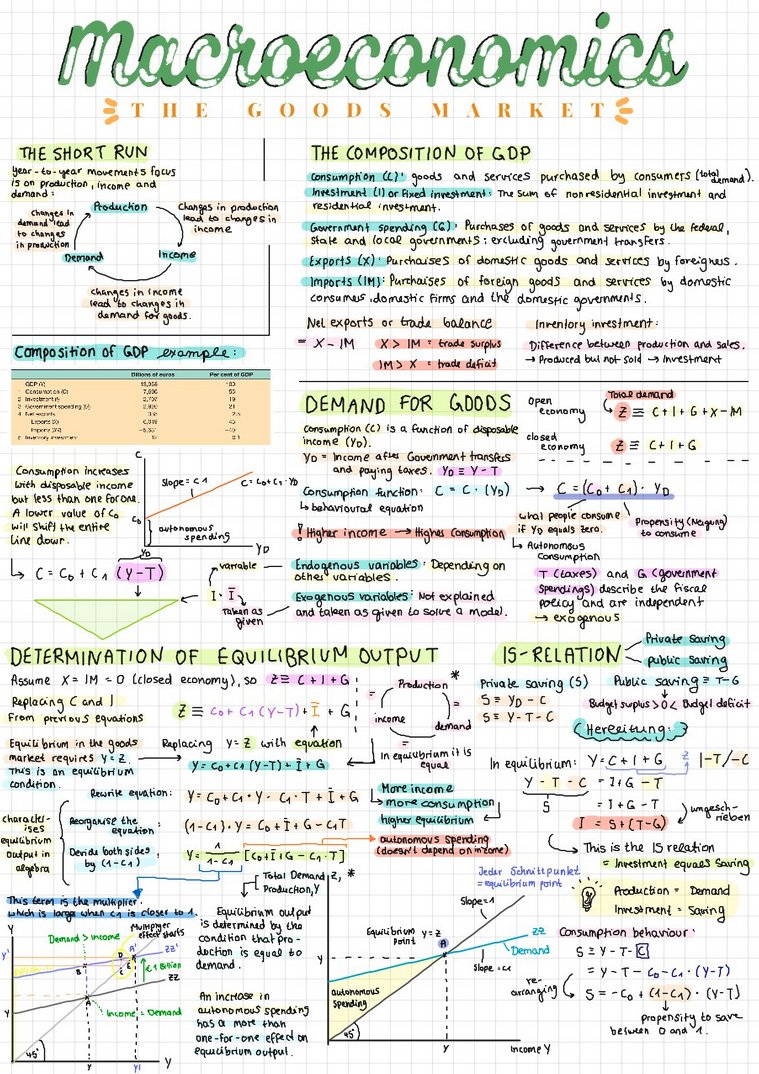 Macroeconomics
THE GOODS MARKET
THE SHORT RUN
Year-to-year movements focus
is on production, income and
demand:
Production
Changes in production
lead to changes in
income
Income
changes in income
lead to changes in
demand for goods.
Demand
changes in
demand lead
to changes
in production
THE COMPOSITION OF GDP
Consumption (C): goods and services purchased by consumers (total demand).
Investment (I) or fixed investment: The sum of nonresidential investment and
residential investment.
Government spending (G): Purchases of goods and services by the federal,
state and local governments: excluding government transfers.
Exports (X): Purchaises of domestic goods and services by foreigners.
Imports (IM): Purchaises of foreign goods and services by domestic
consumes, domestic firms and the domestic governments.
Net exports or trade balance
= X - IM
X > IM = trade surplus
IM > X = trade deficit
Inventory investment:
Difference between production and sales.
→ Produced but not sold → Investment
Composition of GDP example:
Billions of euros
Per cent of GDP
GDP (Y)
100
1 Consumption (C)
55
2 Investment (I)
19
3 Government spending (G)
21
4 Net exports
Exports (X)
Imports (IM)
5 Inventory investment
DEMAND FOR GOODS
consumption (C) is a function of disposable
income (YD).
YD = Income after Government transfers
and paying taxes. YD ≡ Y - T
Consumption function: C = C · (YD)
↳ behavioural equation
! Higher income → Higher Consumption
Open
economy
Total demand
Z ≡ C + I + G + X - M
closed
economy
Z ≡ C + I + G
→ C = (C0 + C1) · YD
what people consume
if YD equals zero.
↳ Autonomous
Consumption
Propensity (Neigung)
to consume
T (taxes) and G (government
spendings) describe the fiscal
policy and are independent
→ exogenous
Consumption increases
with disposable income
but less than one for one.
A lower value of C0
will shift the entire
line down.
C
slope = C1
C = C0 + C1 · YD
C0
autonomous
spending
YD
YD
↳ C = C0 + C1 (Y-T)
variable
I · Ī
Taken as
given
Endogenous variables: Depending on
other variables.
Exogenous variables: Not explained
and taken as given to solve a model.
DETERMINATION OF EQUILIBRIUM OUTPUT
Assume X = IM = 0 (closed economy), so Z ≡ C + I + G
Replacing C and I
From previous equations
Z ≡ C0 + C1 (Y-T) + Ī + G
Equilibrium in the goods
market requires Y = Z.
This is an equilibrium
condition.
Replacing Y = Z with equation
Y = C0 + C1 (Y-T) + Ī + G
Production
income
demand
*
In equilibrium it is
equal
Rewrite equation:
Y = C0 + C1 · Y - C1 · T + Ī + G
More income
more consumption
higher equilibrium
characterises
equilibrium
Output in
algebra
Reorganise the
equation:
(1-C1) · Y = C0 + Ī + G - C1T
Devide both sides
by (1-C1)
Y = 1/(1-C1) [C0 + Ī + G - C1 · T]
autonomous spending
(doesn't depend on income)
This term is the multiplier,
which is large when C1 is closer to 1.
IS-RELATION
Private saving
public saving
Private saving (S)
S ≡ YD - C
S ≡ Y - T - C
Public saving ≡ T - G
Budget surplus > 0 < Budget deficit
(Herleitung:)
In equilibrium: Y = C + I + G
Z
|-T/-C
Y - T - C = I + G - T
S
= I + G - T
I = S + (T-G)
umgeschrieben
This is the IS relation
= Investment equals Saving
Production = Demand
Investment = Saving
Consumption behaviour:
S ≡ Y - T - C
= Y - T - C0 - C1 · (Y-T)
rearranging
S = -C0 + (1-C1) · (Y-T)
propensity to save
between 0 and 1.
Y
Demand > income
Multiplier
effect starts
A'
ZZ'
D
E
B
C
€ 1 Billion
ZZ
A
Income = Demand
Y'
Y
45°
Y
Y1
Y
Equilibrium output
is determined by the
condition that pro-
duction is equal to
demand.
An increase in
autonomous spending
has a more than
one-for-one effect on
equilibrium output.
Total Demand, Z,
Production, Y
*
Jeder Schnittpunkt
= equilibrium point
slope = 1
Equilibrium
Point
Y = Z
A
ZZ
Demand
slope = C1
autonomous
Spending
45°
Y
Income Y